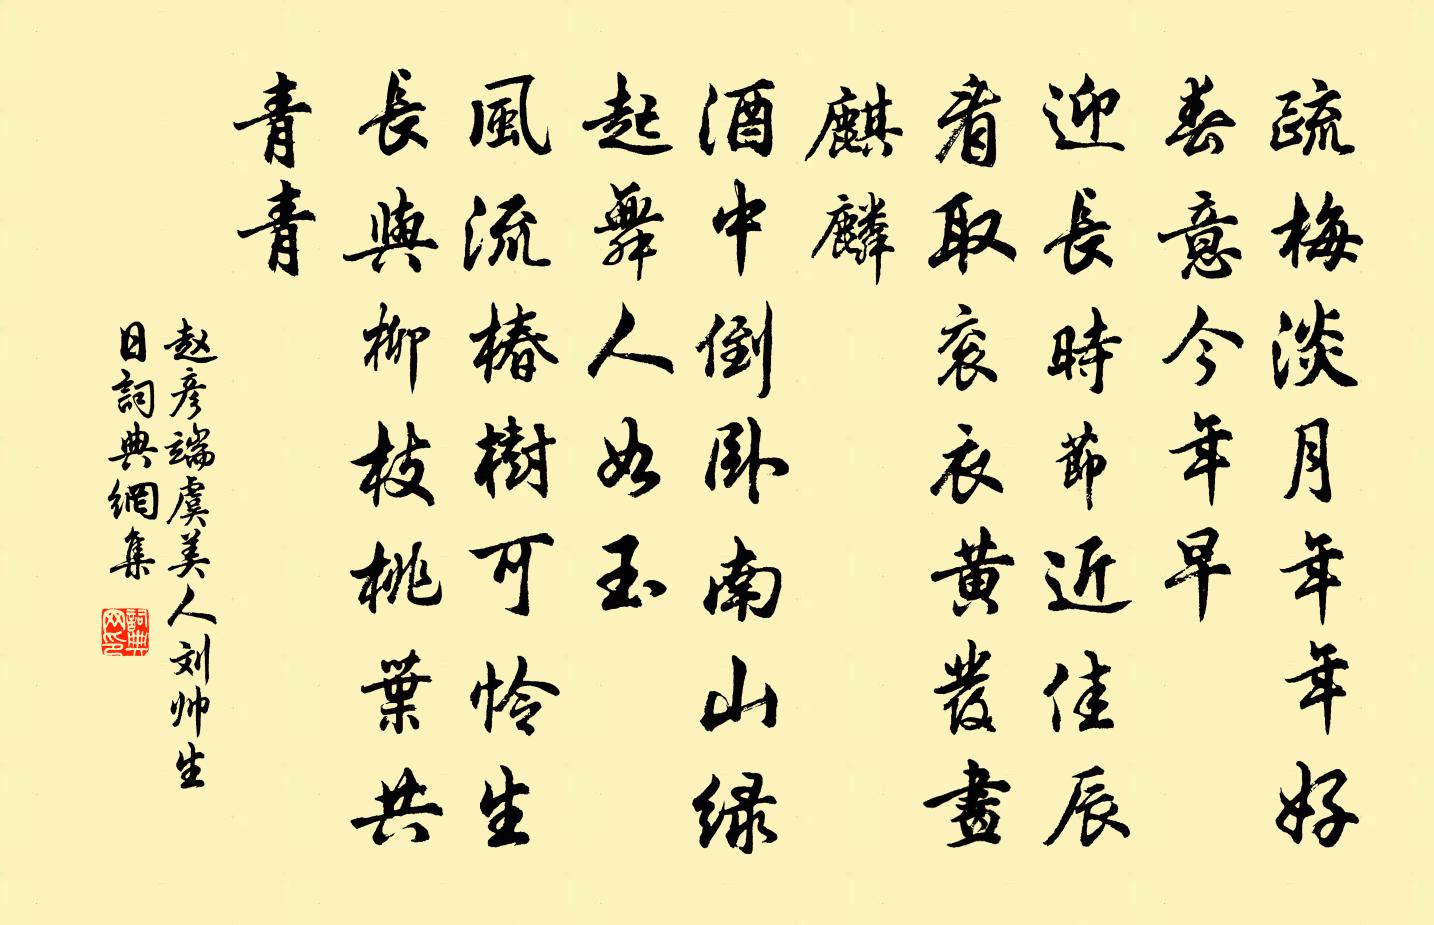 疏梅淡月年年好
春意今年早
迎長時節近佳辰
看取衮衣黄發畫
麒麟
酒中倒卧南山緑
起舞人如玉
風流椿樹可怜生
長與柳枝桃葉共
青青
赵彦端虞美人刘帅生
日詞典網集
詞典
网印